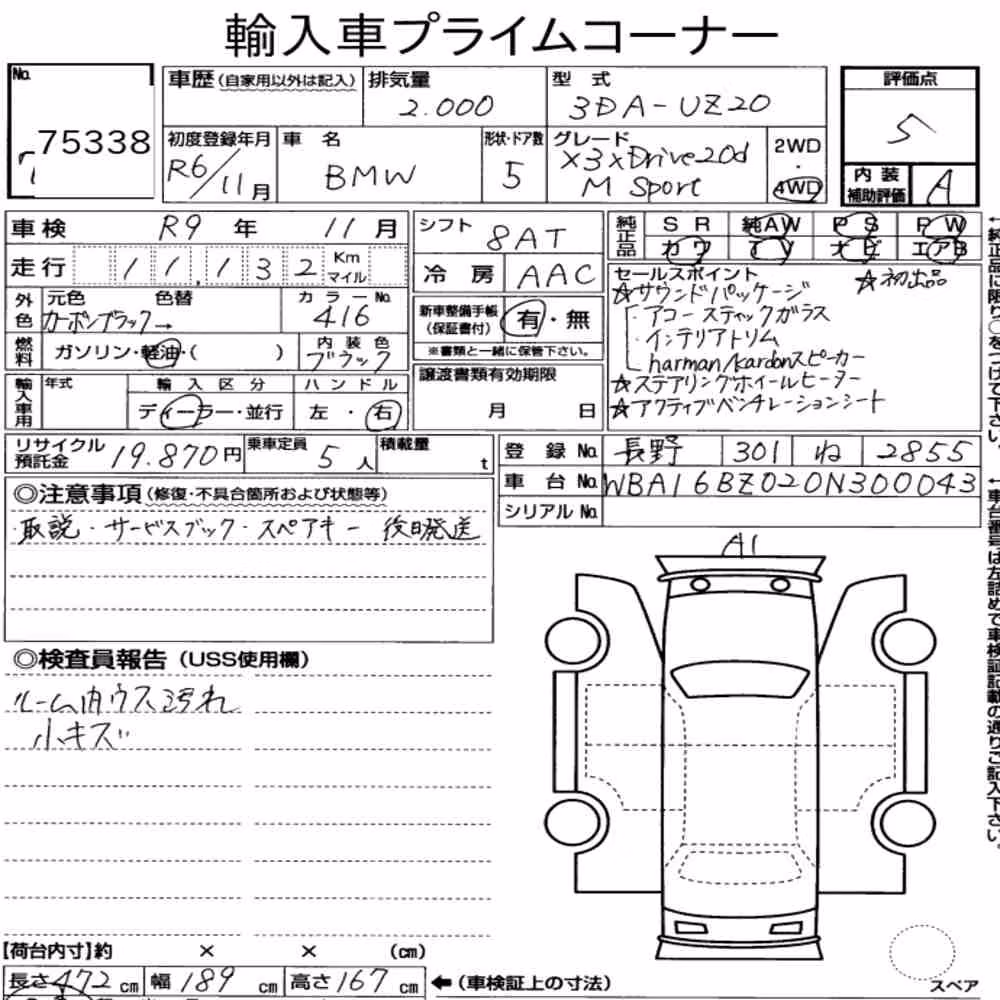 輸入車プライムコーナー
No.
75338
車歴(自家用以外は記入)
排気量
2.000
型式
3DA-UZ20
評価点
5
初度登録年月
R6/11月
車名
BMW
形状・ドア数
5
グレード
X3 xDrive20d
M Sport
2WD
・
4WD
内装
補助評価
A
車検 R9年 11月
シフト
8AT
純正品
SR 純AW PS PW
カワ TV ナビ エアB
走行 11,132 Km
マイル
冷房 AAC
セールスポイント
☆初出品
☆サウンドパッケージ
・アコースティックガラス
・インテリアトリム
harman/kardonスピーカー
☆ステアリングホイールヒーター
☆アクティブベンチレーションシート
外色
元色 色替
カーボンブラック→
カラーNo.
416
新車整備手帳
(保証書付)
有・無
※書類と一緒に保管下さい。
燃料
ガソリン・軽油・( )
内装色
ブラック
譲渡書類有効期限
月 日
輸入車用
年式
輸入区分
ディーラー・並行
ハンドル
左・右
リサイクル
預託金
19.870円
乗車定員
5人
積載量
t
登録No. 長野 301 ね 2855
車台No. WBA16BZ020N300043
シリアルNo.
◎注意事項(修復・不具合箇所および状態等)
・取説・サービスブック・スペアキー 後日発送
A1
◎検査員報告(USS使用欄)
ルーム内ウス汚れ
小キズ
【荷台内寸】約 × × (cm)
長さ472cm 幅189cm 高さ167cm
←(車検証上の寸法)
スペア
←純正品に限り○をつけて下さい。
←車台番号は左詰めで車検証記載の通りご記入下さい。